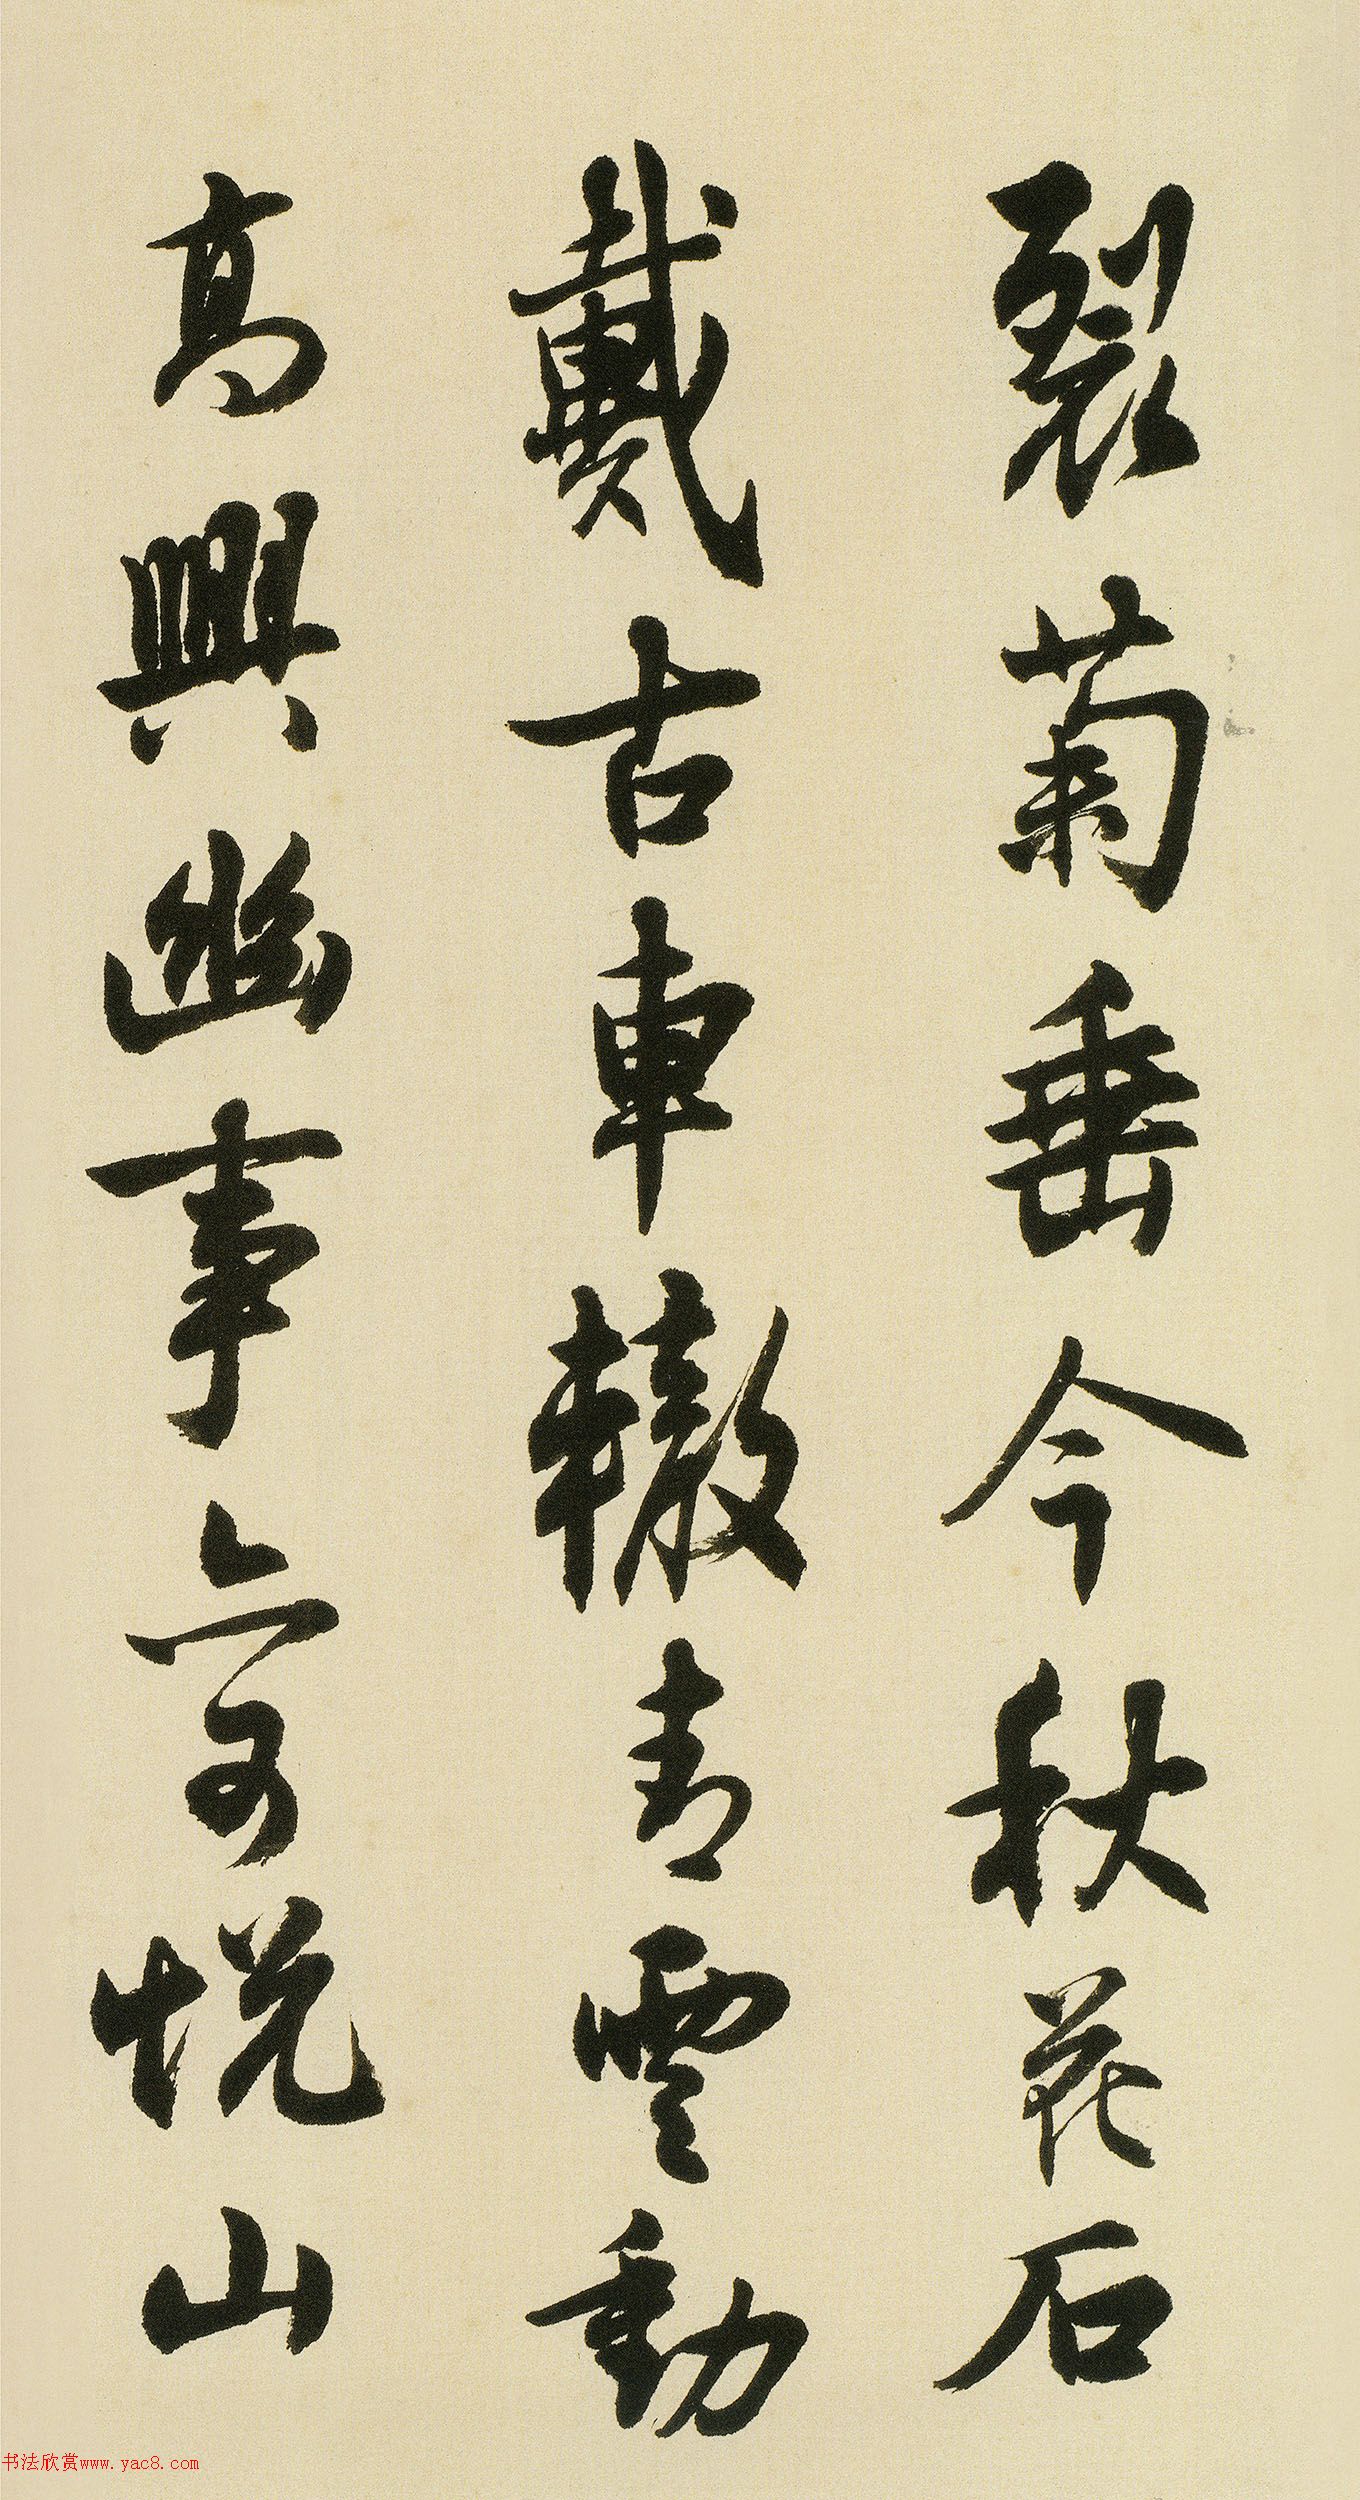 裂菊垂今秋花石
戴古車轍青雲動
高興幽事亦可悅山
书法欣赏www.yac8.com